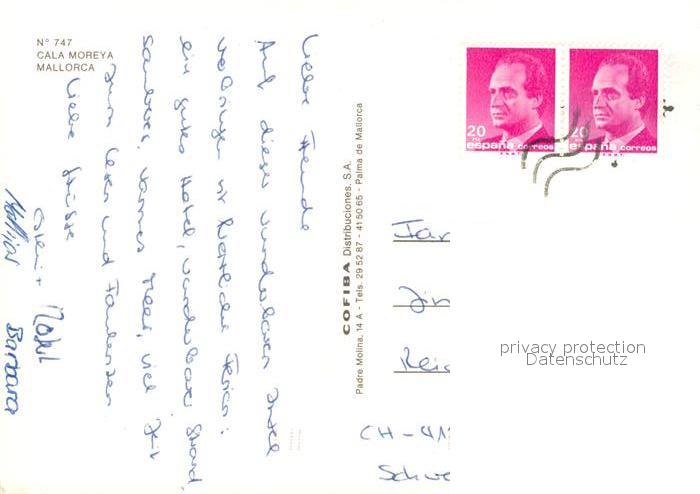 Nº 747
CALA MOREYA
MALLORCA
Liebe Freunde
Auf dieser wunderbaren Insel
verbringen wir herrliche Ferien:
ein gutes Hotel, wunderbarer Strand,
sauberes, warmes Meer, viel Zeit
zum Lesen und Faulenzen
Liebe Grüsse
Barbara
COFIBA Distribuciones, S.A.
Padre Molina, 14 A - Tels. 29 52 87 - 41 50 65 - Palma de Mallorca
20
españa correos
20
españa correos
privacy protection
Datenschutz
CH-41
Schwe